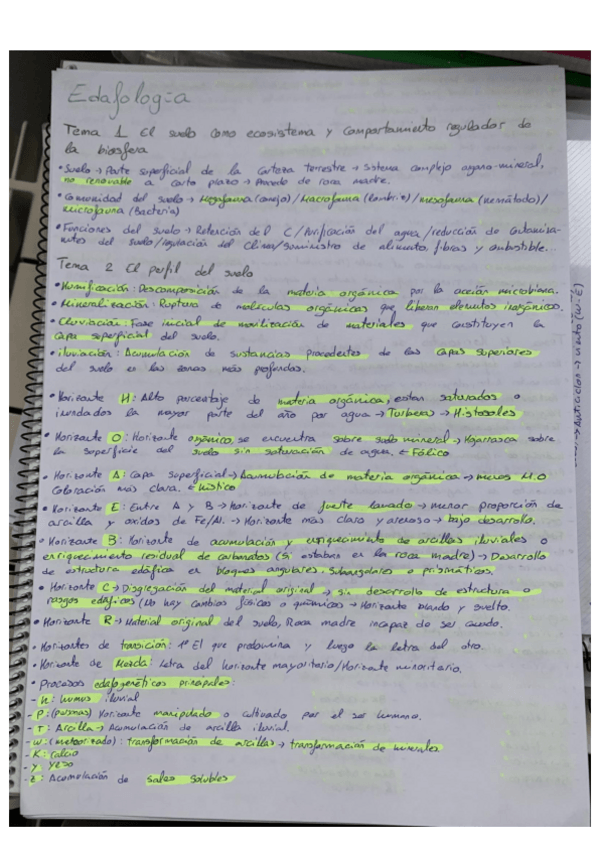 Edafologia
Tema 1 El suelo como ecosistema y comportamiento regulador de
la biosfera
• Suelo → Parte superficial de la corteza terrestre → Sistema complejo organo-mineral,
no renovable a corto plazo → Procede de roca madre.
• Comunidad del suelo → Megafauna (conejo) / Macrofauna (lombriz) / mesofauna (nemátodo) /
microfauna (Bacteria)
• Funciones del suelo → Retención del C / Purificación del agua / reducción de contamina-
ntes del suelo / regulación del Clima / suministro de alimento, fibras y combustible...
Tema 2 El perfil del suelo
• Humificación: Descomposición de la materia orgánica por la acción microbiana.
• Mineralización: Ruptura de moléculas orgánicas que liberan elementos inorgánicos.
• Eluviación: Fase inicial de movilización de materiales que constituyen la
capa superficial del suelo.
• iluviación: Acumulación de sustancias procedentes de las capas superiores
del suelo en las zonas más profundas.
• Horizonte H: Alto porcentaje de materia orgánica, están saturados o
inundados la mayor parte del año por agua → Turberas → Histosoles
• Horizonte O: Horizonte orgánico, se encuentra sobre suelo mineral → Hojarasca sobre
la superficie del suelo sin saturación de agua. ← Fólico
• Horizonte A: Capa superficial → Acumulación de materia orgánica → menos M.O
Coloración más clara.
• Horizonte E: Entre A y B → Horizonte de fuerte lavado → menor proporción de
arcilla y oxidos de Fe/Al. → Horizonte más claro y arenoso → bajo desarrollo.
• Horizonte B: Horizonte de acumulación y enriquecimiento de arcillas iluviales o
enriquecimiento residual de carbonatos (si estaban en la roca madre) → Desarrollo
de estructura edáfica en bloques angulares, subangulares o prismáticos.
• Horizonte C → Disgregación del material original → sin desarrollo de estructura o
rasgos edáficos (No hay cambios físicos o químicos → Horizonte blando y suelto.
• Horizonte R → Material original del suelo, Roca madre incapaz de ser cavado.
• Horizontes de transición: 1º El que predomina y luego la letra del otro.
• Horizonte de Mezcla: Letra del horizonte mayoritario / Horizonte minoritario.
• Procesos edafogenéticos principales:
- h: humus iluvial
- P: Horizonte manipulado o cultivado por el ser humano.
- T: Arcilla → Acumulación de arcilla iluvial.
- w: (meteorizado): transformación de arcillas → transformación de minerales
- K: calcio
- y: yeso
- z: Acumulación de sales solubles
→ Anticiclos → viento (W-E)